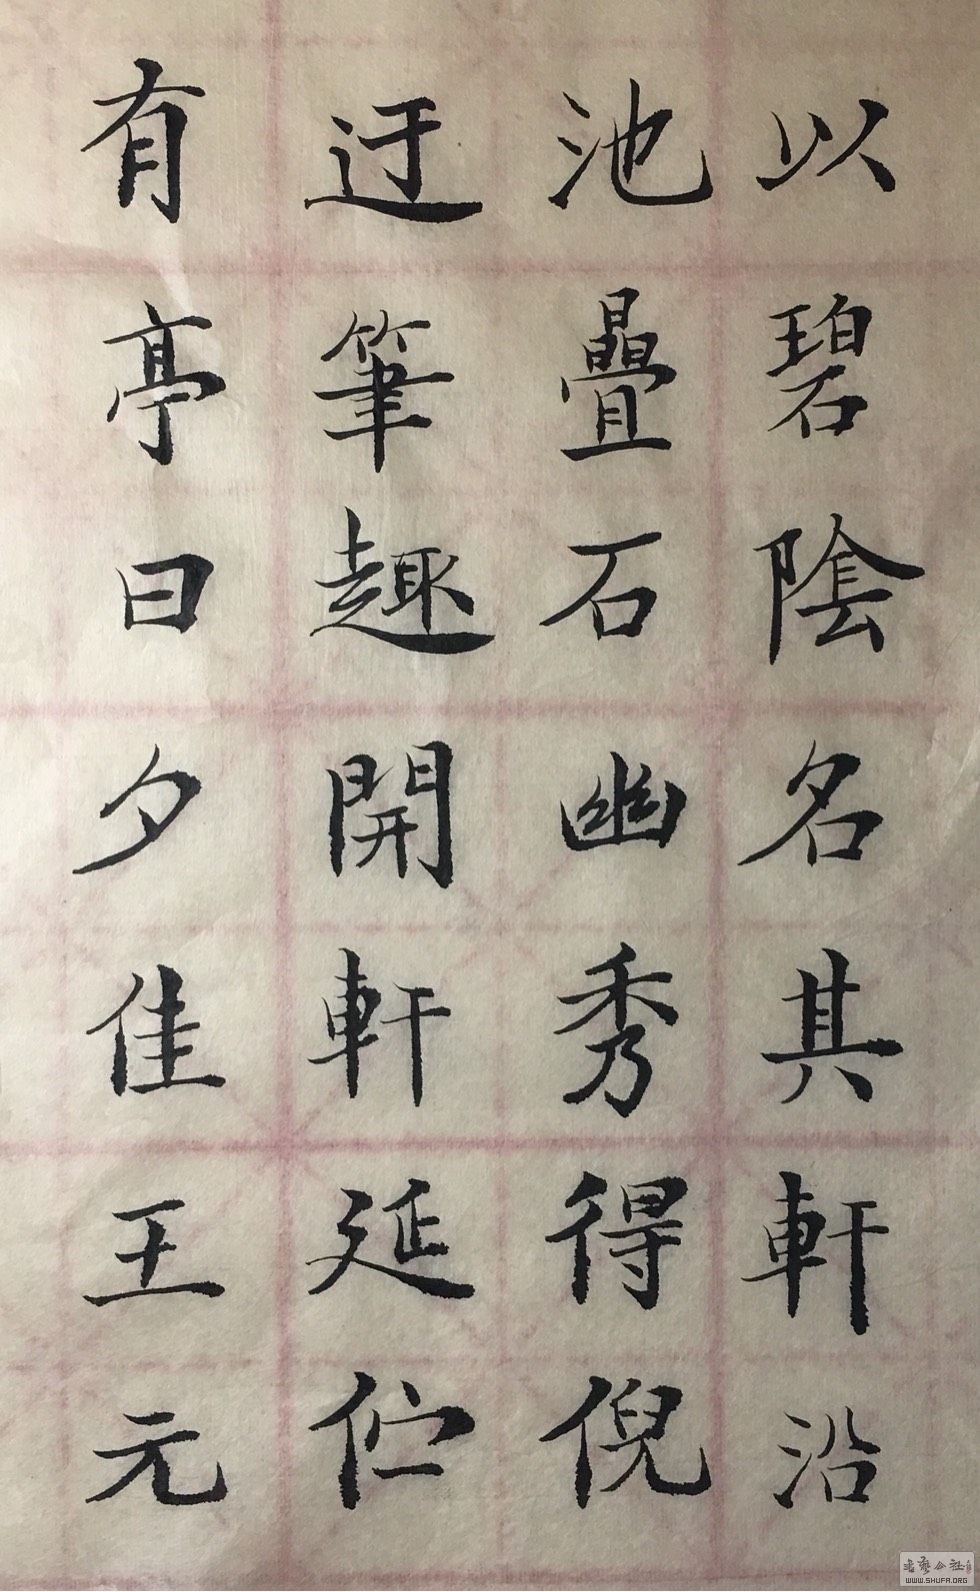 以碧陰名其軒沿
池疊石幽秀得倪
迂筆趣開軒延佇
有亭曰夕佳王元
WWW.SHUFA.ORG